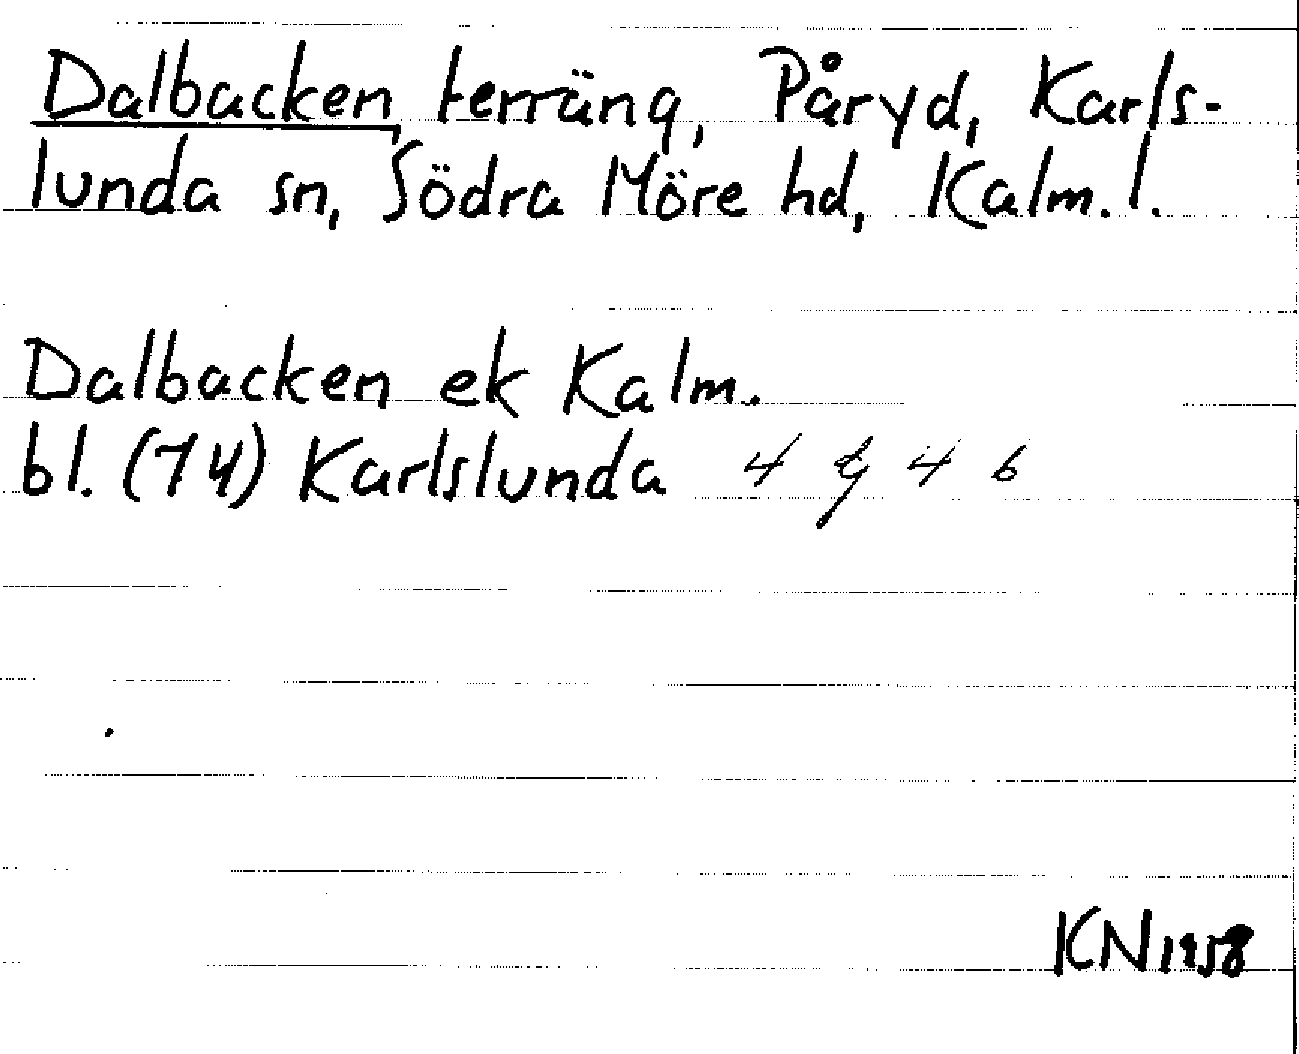 Dalbacken, terräng, Påryd, Karls-
lunda sn, Södra Möre hd, Kalm. l.
Dalbacken ek Kalm.
bl. (74) Karlslunda 4 g 4 b
KN 1958